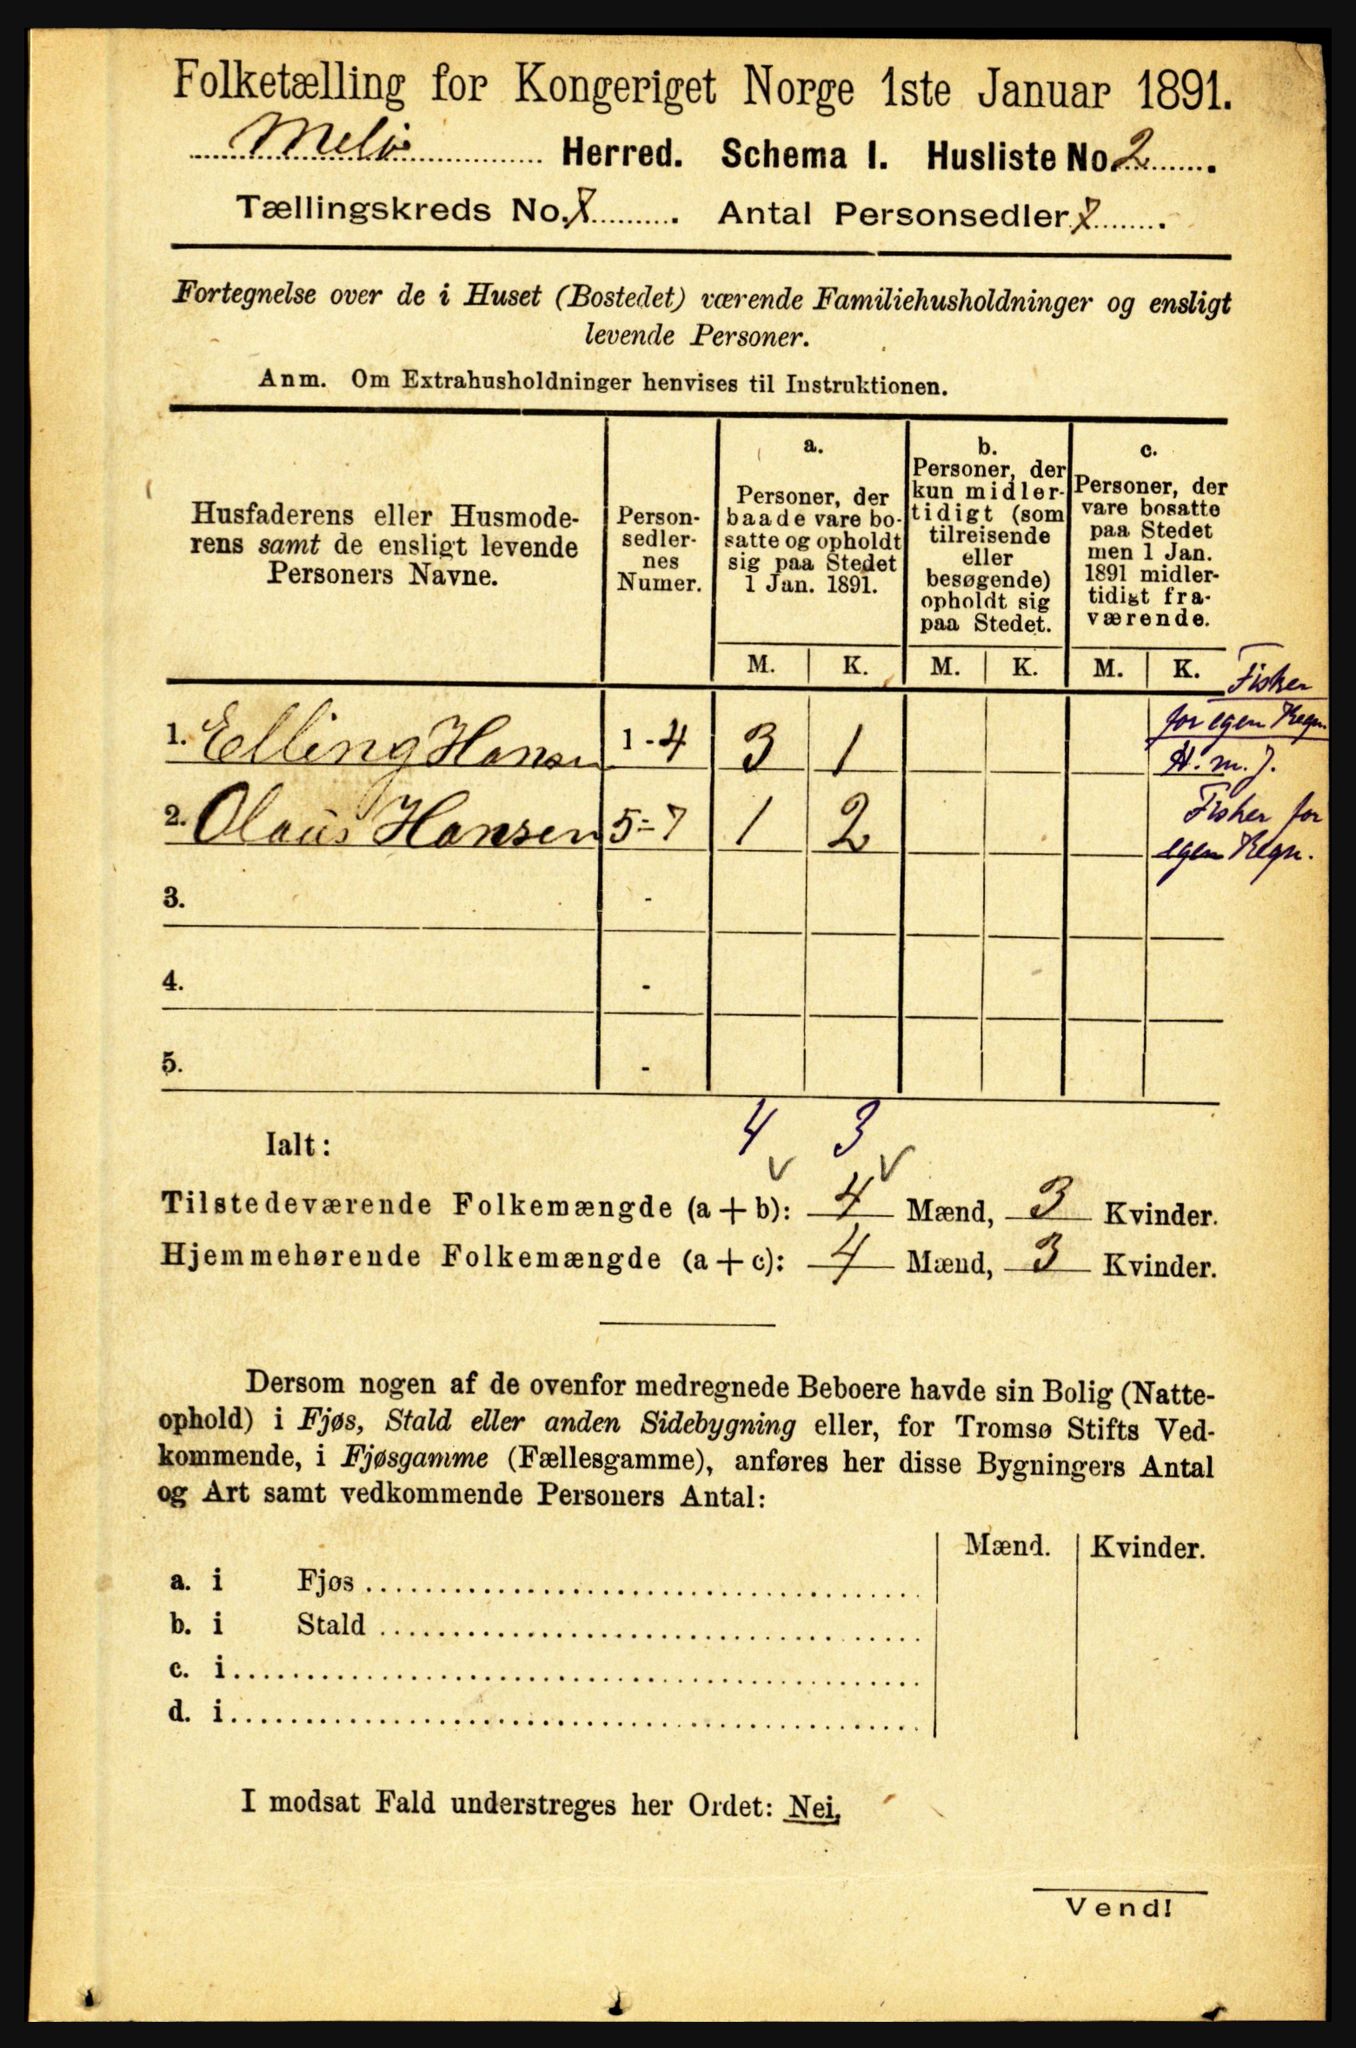 Folketælling for Kongeriget Norge 1ste Januar 1891.
Melø Herred. Schema I. Husliste No. 2.
Tællingskreds No. . Antal Personsedler 7.
Fortegnelse over de i Huset (Bostedet) værende Familiehusholdninger og ensligt
levende Personer.
Anm. Om Extrahusholdninger henvises til Instruktionen.
Husfaderens eller Husmode-
rens samt de ensligt levende
Personers Navne.
Person-
sedler-
nes
Numer.
a.
Personer, der
baade vare bo-
satte og opholdt
sig paa Stedet
1 Jan. 1891.
b.
Personer, der
kun midler-
tidigt (som
tilreisende
eller
besøgende)
opholdt sig
paa Stedet.
c.
Personer, der
vare bosatte
paa Stedet
men 1 Jan.
1891 midler-
tidigt fra-
værende.
M. K. M. K. M. K.
1. Elling Hansen 1 - 4 3 1
Fisker
for egen Regn.
H. m. J.
2. Olaus Hansen 5 - 7 1 2
Fisker for
egen Regn.
3. -
4. -
5. -
4 3
Ialt:
Tilstedeværende Folkemængde (a + b): 4 Mænd, 3 Kvinder.
Hjemmehørende Folkemængde (a + c): 4 Mænd, 3 Kvinder.
Dersom nogen af de ovenfor medregnede Beboere havde sin Bolig (Natte-
ophold) i Fjøs, Stald eller anden Sidebygning eller, for Tromsø Stifts Ved-
kommende, i Fjøsgamme (Fællesgamme), anføres her disse Bygningers Antal
og Art samt vedkommende Personers Antal:
Mænd. Kvinder.
a. i Fjøs
b. i Stald
c. i
d. i
I modsat Fald understreges her Ordet: Nei.
Vend!